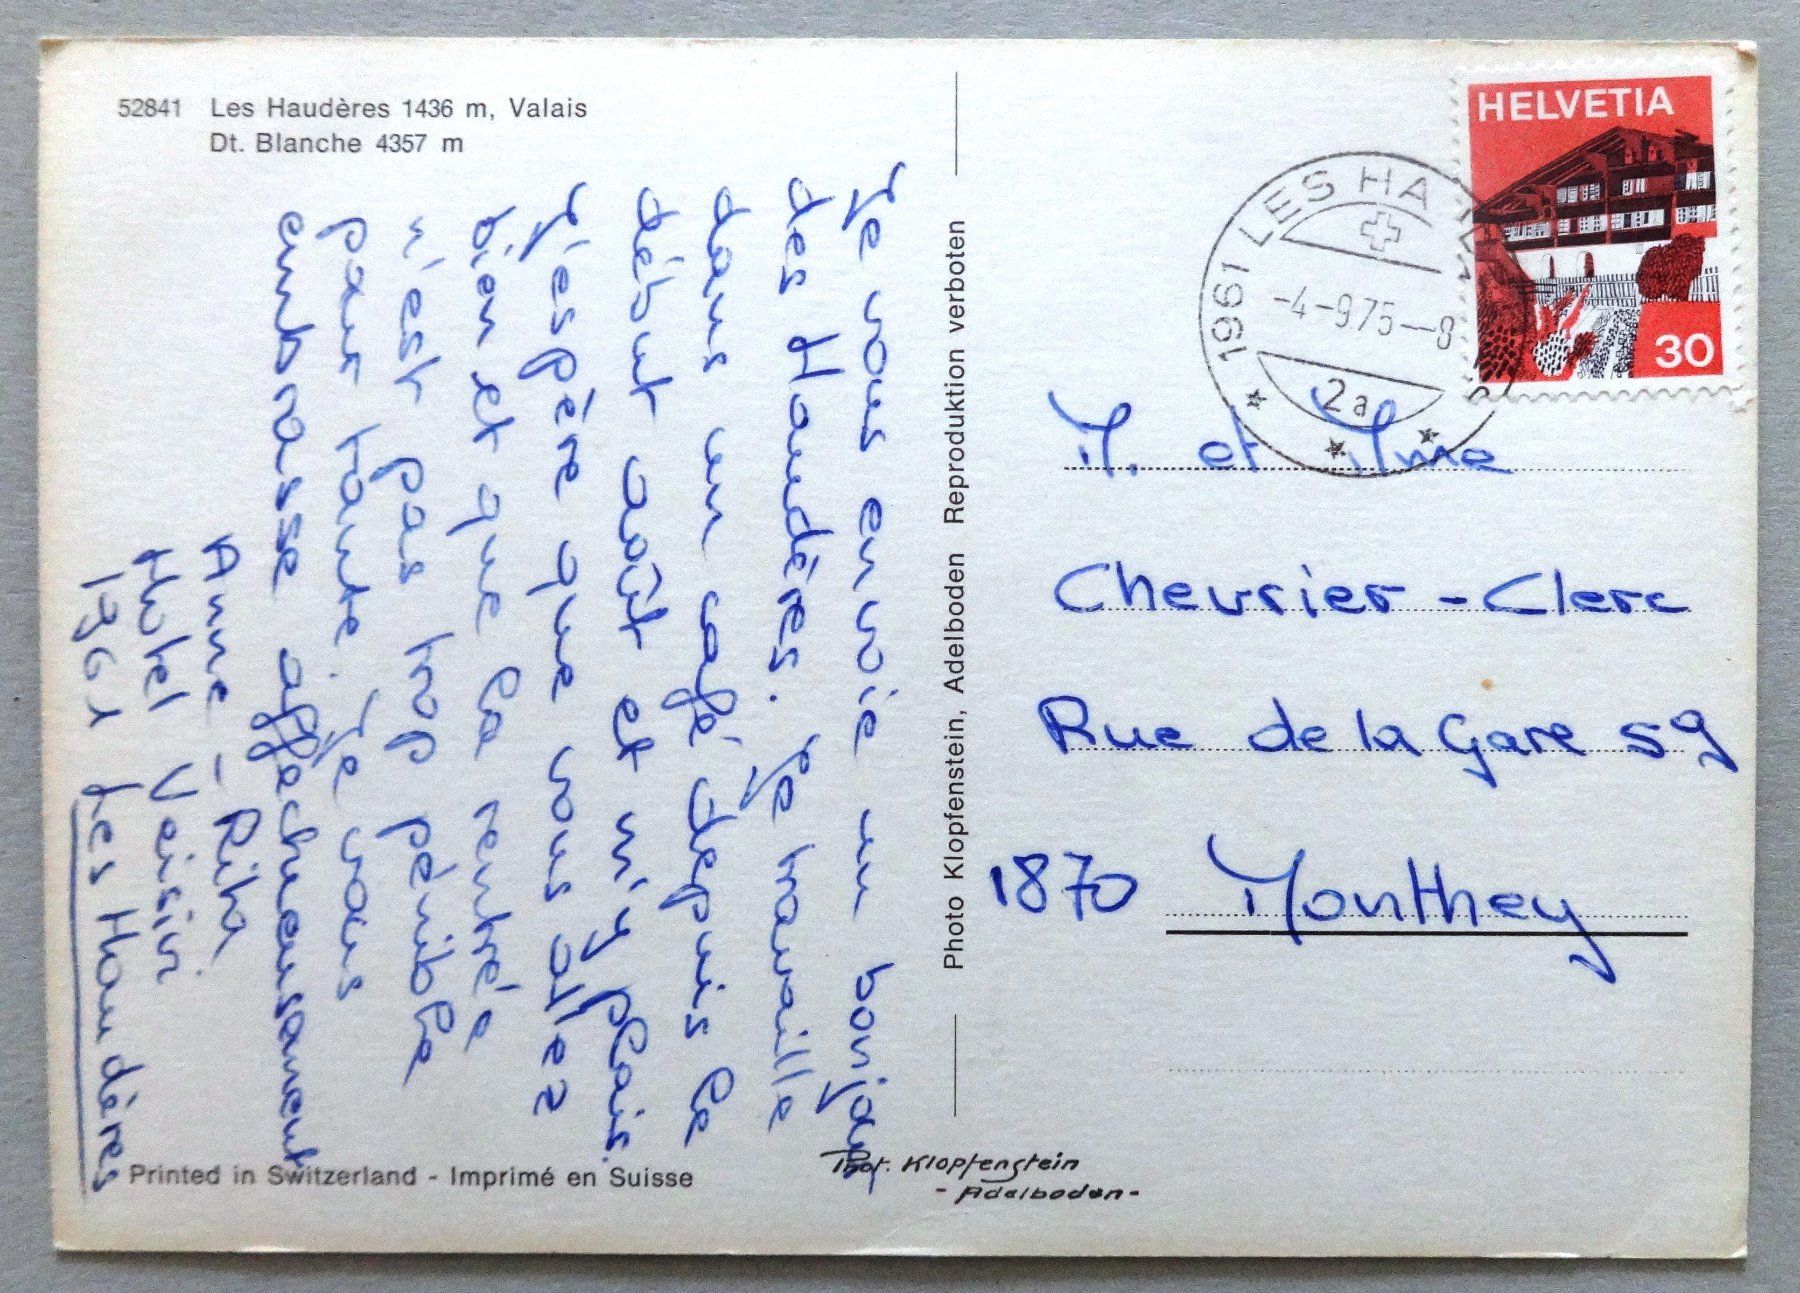 52841 Les Haudères 1436 m, Valais
Dt. Blanche 4357 m
Je vous envoie un bonjour
des Haudères. Je travaille
dans un café depuis le
début août et m'y plais.
J'espère que vous allez
bien et que la rentrée
n'est pas trop pénible
pour toute. Je vous
embrasse affectueusement
Anne-Rita
Hotel Veisivi
1961 Les Haudères
Printed in Switzerland - Imprimé en Suisse
Photo Klopfenstein, Adelboden Reproduktion verboten
Phot. Klopfenstein
- Adelboden -
HELVETIA
30
1961 LES HA
-4-9.75-8
2a
M. et Mme
Chevrier-Clerc
Rue de la Gare 59
1870 Monthey